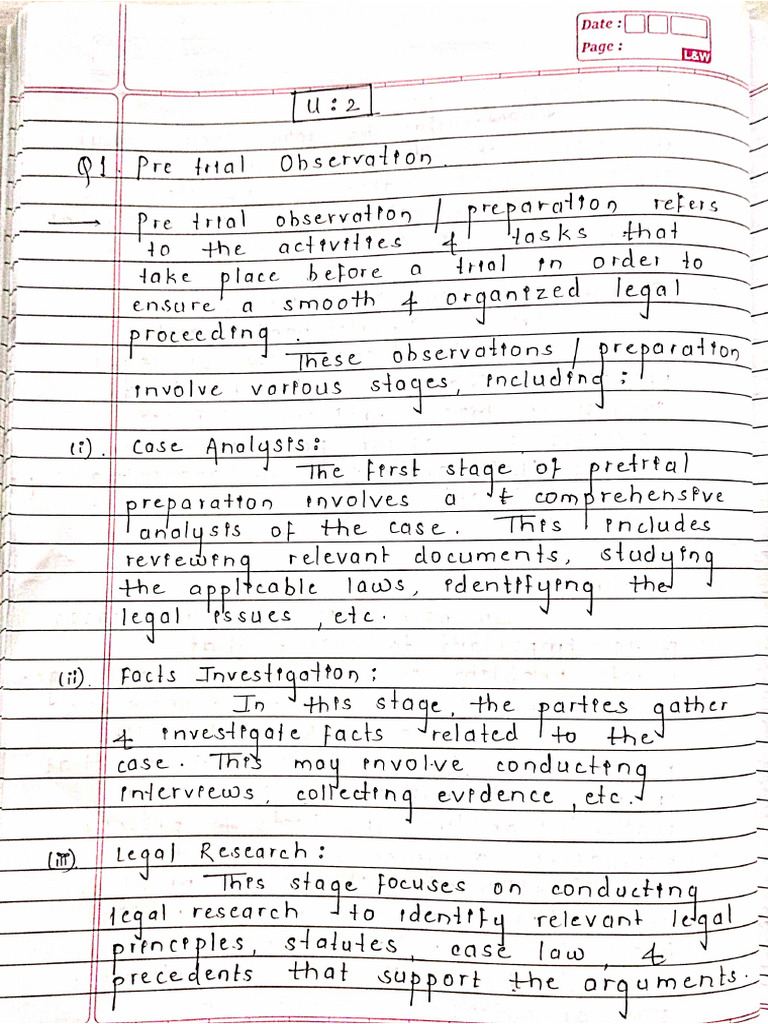 Date :
Page :
L&W
U : 2
Q1. Pre trial Observation.
→ Pre trial observation / preparation refers
to the activities & tasks that
take place before a trial in order to
ensure a smooth & organized legal
proceeding.
These observations / preparation
involve various stages, including :
(i). Case Analysis :
The first stage of pretrial
preparation involves a t comprehensive
analysis of the case. This includes
reviewing relevant documents, studying
the applicable laws, identifying the
legal issues, etc.
(ii). Facts Investigation :
In this stage, the parties gather
& investigate facts related to the
case. This may involve conducting
interviews, collecting evidence, etc.
(iii). Legal Research :
This stage focuses on conducting
legal research to identify relevant legal
principles, statutes, case law, &
precedents that support the arguments.